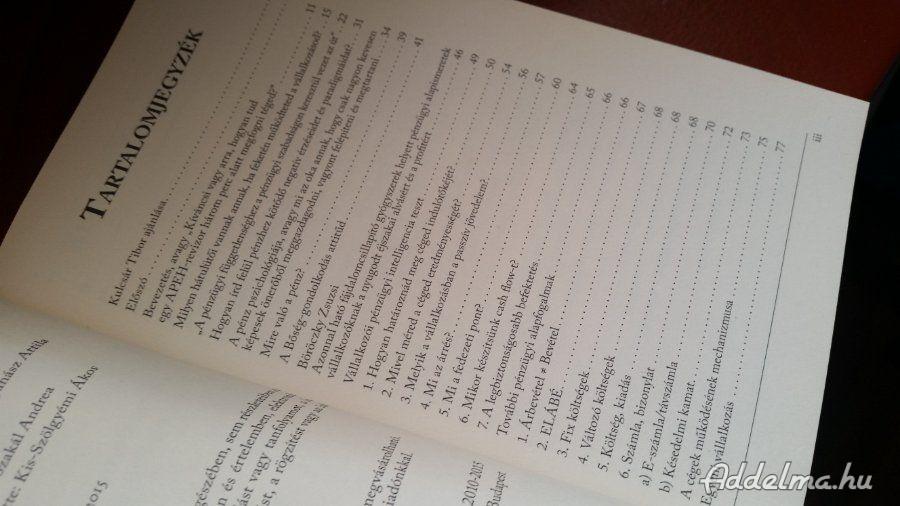 TARTALOMJEGYZÉK
Kulcsár Tibor ajánlása
Előszó
Bevezetés, avagy „Kíváncsi vagy arra, hogyan tud
egy APEH-revizor három perc alatt megfogni téged?” 11
Milyen hátulütői vannak annak, ha feketén működteted a vállalkozásod? 15
„A pénzügyi függetlenséghez a pénzügyi szabadságon keresztül vezet az út” 22
Hogyan írd felül pénzhez kötődő negatív érzéseidet és paradigmáidat? 31
A pénz pszichológiája, avagy mi az oka annak, hogy csak nagyon kevesen
képesek önerőből meggazdagodni, vagyont felépíteni és megtartani 34
Mire való a pénz? 39
A Bőség-gondolkodás attitűd 41
Böröczky Zsuzsi
Azonnal ható fájdalomcsillapító gyógyszerek helyett pénzügyi alapismeretek
vállalkozóknak a nyugodt éjszakai alvásért és a profitért 46
Vállalkozói pénzügyi intelligencia teszt 49
1. Hogyan határoznád meg céged indulótőkéjét? 50
2. Mivel méred a céged eredményességét? 54
3. Melyik a vállalkozásban a passzív jövedelem? 56
4. Mi az árrés? 57
5. Mi a fedezeti pont? 60
6. Mikor készítsünk cash flow-t? 64
7. A legbiztonságosabb befektetés 65
További pénzügyi alapfogalmak 66
1. Árbevétel ≠ Bevétel 66
2. ELÁBÉ 67
3. Fix költségek 68
4. Változó költségek 68
5. Költség, kiadás 68
6. Számla, bizonylat 70
a) E-számla/távszámla 72
b) Késedelmi kamat 73
A cégek működésének mechanizmusa 75
vállalkozás 77
iii
Attila
Andrea
Kis-Szölgyémi Ákos
2015
egészében, sem
és értelemben,
vagy tanfolyamot
a rögzítést vagy
megvásárolható
kiadónkkal
2010-2015
Budapest
Addelma.hu